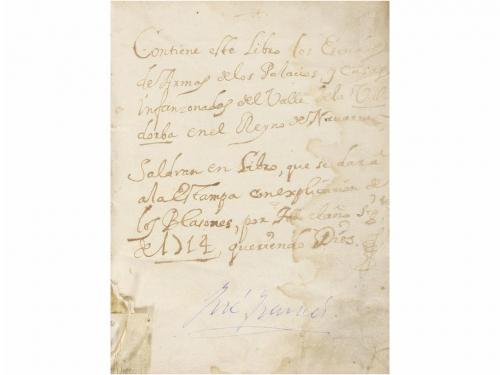 Contiene este Libro los Escudos
de Armas de los Palacios, y Casas
Infanzonadas del Valle de la Vall
dorba en el Reyno de Navarra
Saldran en Libro, que se dará
a la Estampa con explicacion de
los Blasones, por el año
de 1714, queriendo Dios.
José